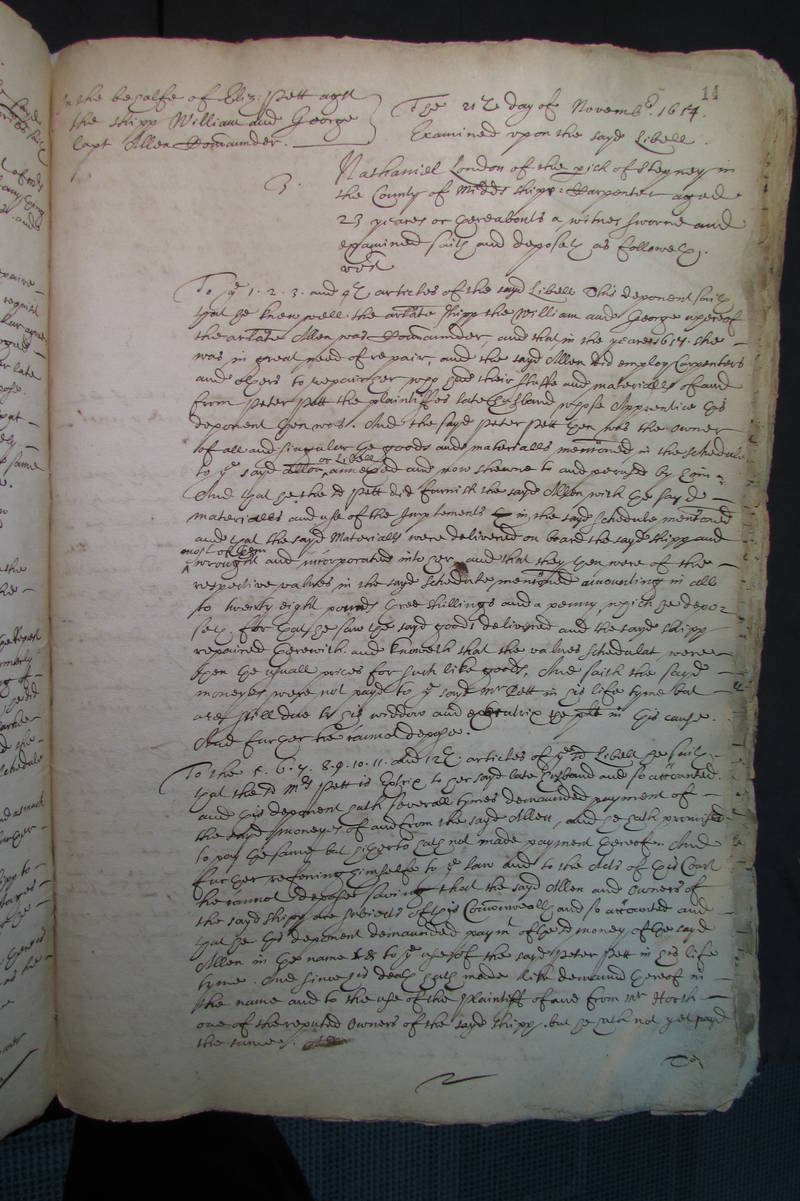 14
In the behalfe of Eliz: Pett agt
the shipp William and George
Capt Allen Comaunder.
The 21th day of Novembr. 1654.
Examined upon the sayd Libell.
3.
Nathaniell London of the pish of Stepney in
the County of Middx shipp: Carpenter aged
23 yeares or thereabouts a witnes sworne and
examined saith and deposeth as followeth.
vizt
To ye 1. 2. 3. and 4th articles of the sayd Libell This deponent saith
that he knew well the arlate shipp the William and George whereof
the arlate Allen was Comaunder, and that in the yeare 1654. she
was in great need of repair, and the sayd Allen did employ Carpenters
and others to repair her, who had their stuffe and materialls of and
from Peter Pett the plaintiffes late husband whose Apprentice this
deponent then was. And the sayd Peter Pett then was the owner
of all and singular the goods and materialls mentioned in the schedule
to ye sayd allon or Libell annexed and now shewne to and perused by him
And that he the sd Pett did furnish the sayd Allen with the sayd
materialls and use of the Implements in the sayd schedule mentioned
and that the sayd Materialls were delivered on board the sayd shipp and
most of them
wrought and incorporated into her, and that they then were of the
respective values in the sayd schedule mentioned amounting in all
to twenty eight pounds three shillings and a penny, which he depo-
seth for that he saw the sayd goods delivered and the sayd shipp
repaired therewith. and knoweth that the values schedulat were
then the usuall prices for such like goods, And saith the sayd
moneyes were not payd to ye sayd Mr Pett in his life tyme but
are still due to his widdow and executrix the plt in this cause.
And further he cannot depose.
To the 5. 6. 7. 8. 9. 10. 11. and 12th. articles of ye sd Libell he saith
that the sd Mrs Pett is Extrix to her sayd late husband and so accounted.
and this deponent hath severall tymes demaunded payment of
the sayd moneyes of and from the sayd Allen, and he hath promised
to pay the same but hitherto hath not made payment thereof. And
further referring himselfe to ye law and to the Acts of this Court
he cannot depose saving that the sayd Allen and Owners of
the sayd shipp are subiects of this Comonwealth and so accounted and
that he this deponent demaunded paymt of the sd money of the sayd
Allen in the name & to ye use of the sayd Peter Pett in his life
tyme. And since his death hath made like demaund thereof in
the name and to the use of the plaintiff of and from Mr North
one of the reputed Owners of the sayd shipp. but he hath not yet payd
the same.
To